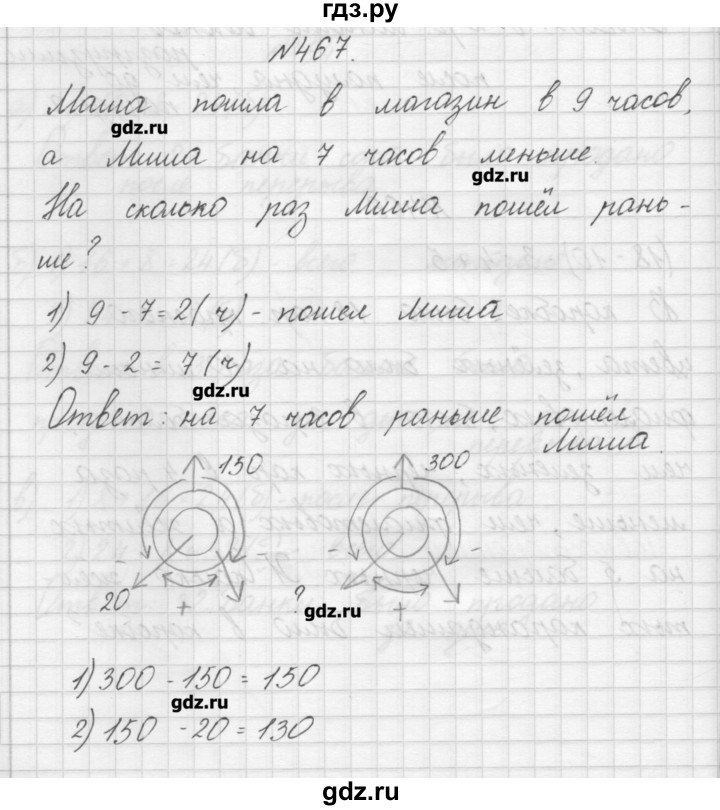 гдз.ру
№467.
Маша пошла в магазин в 9 часов,
gdz.ru
а Миша на 7 часов меньше.
gdz.ru
На сколько раз Миша пошёл рань-
ше?
1) 9 - 7 = 2 (ч) - пошел Миша
2) 9 - 2 = 7 (ч)
gdz.ru
Ответ: на 7 часов раньше пошёл
Миша.
150 300
- - - -
20 + ? gdz.ru +
1) 300 - 150 = 150
gdz.ru
2) 150 - 20 = 130
gdz.ru